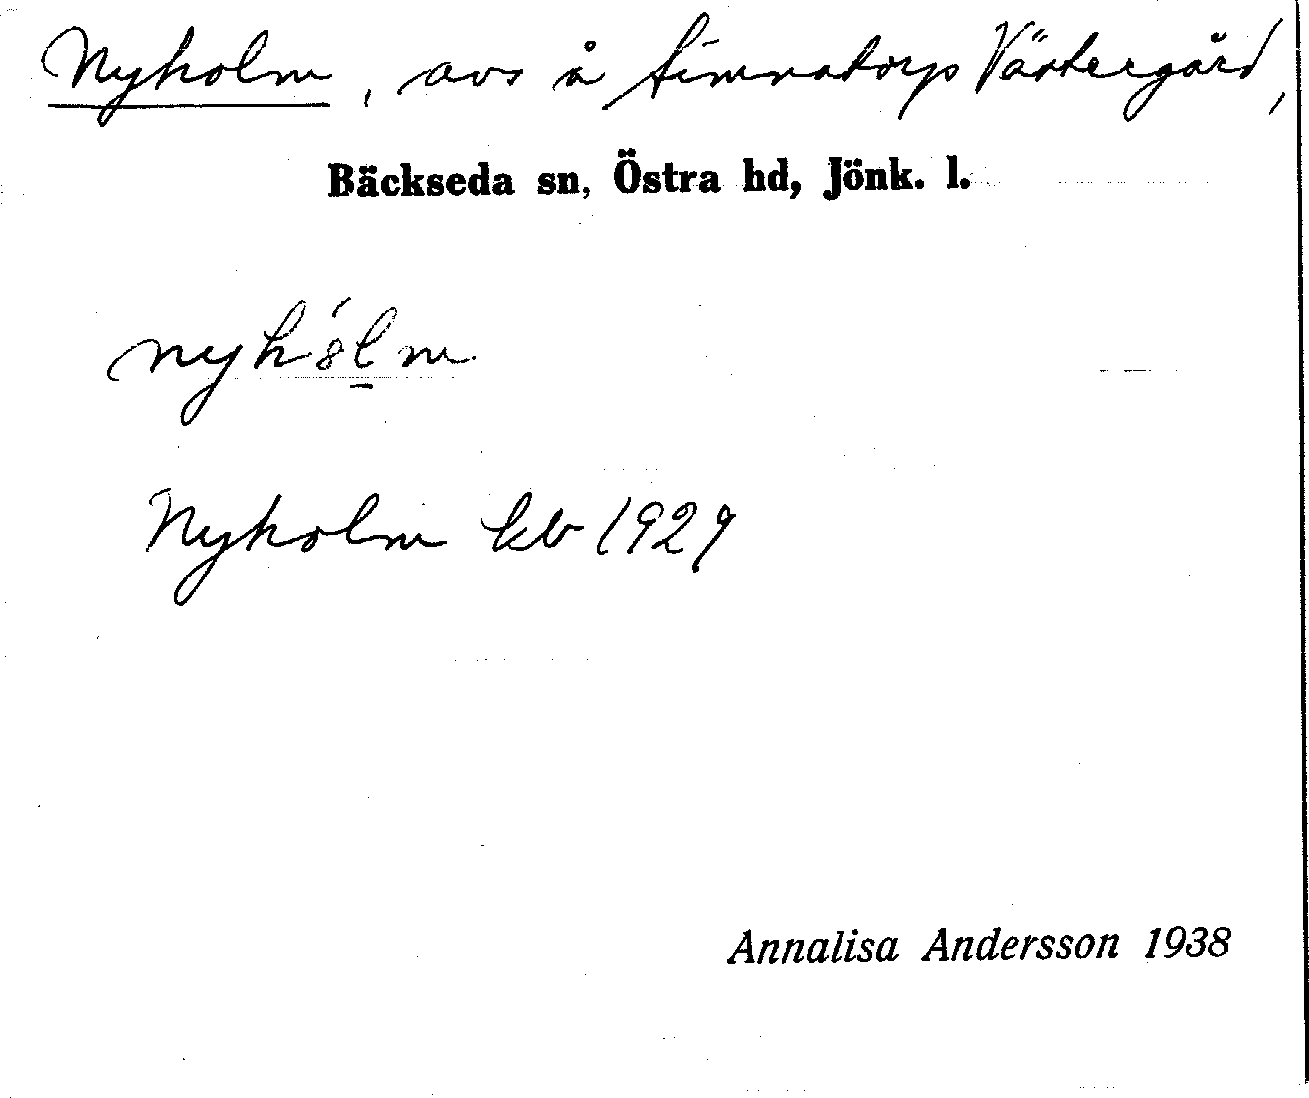 Nyholm, avs å Simnatorp Västergård,
Bäckseda sn, Östra hd, Jönk. l.
Nyholm kb 1929
Annalisa Andersson 1938